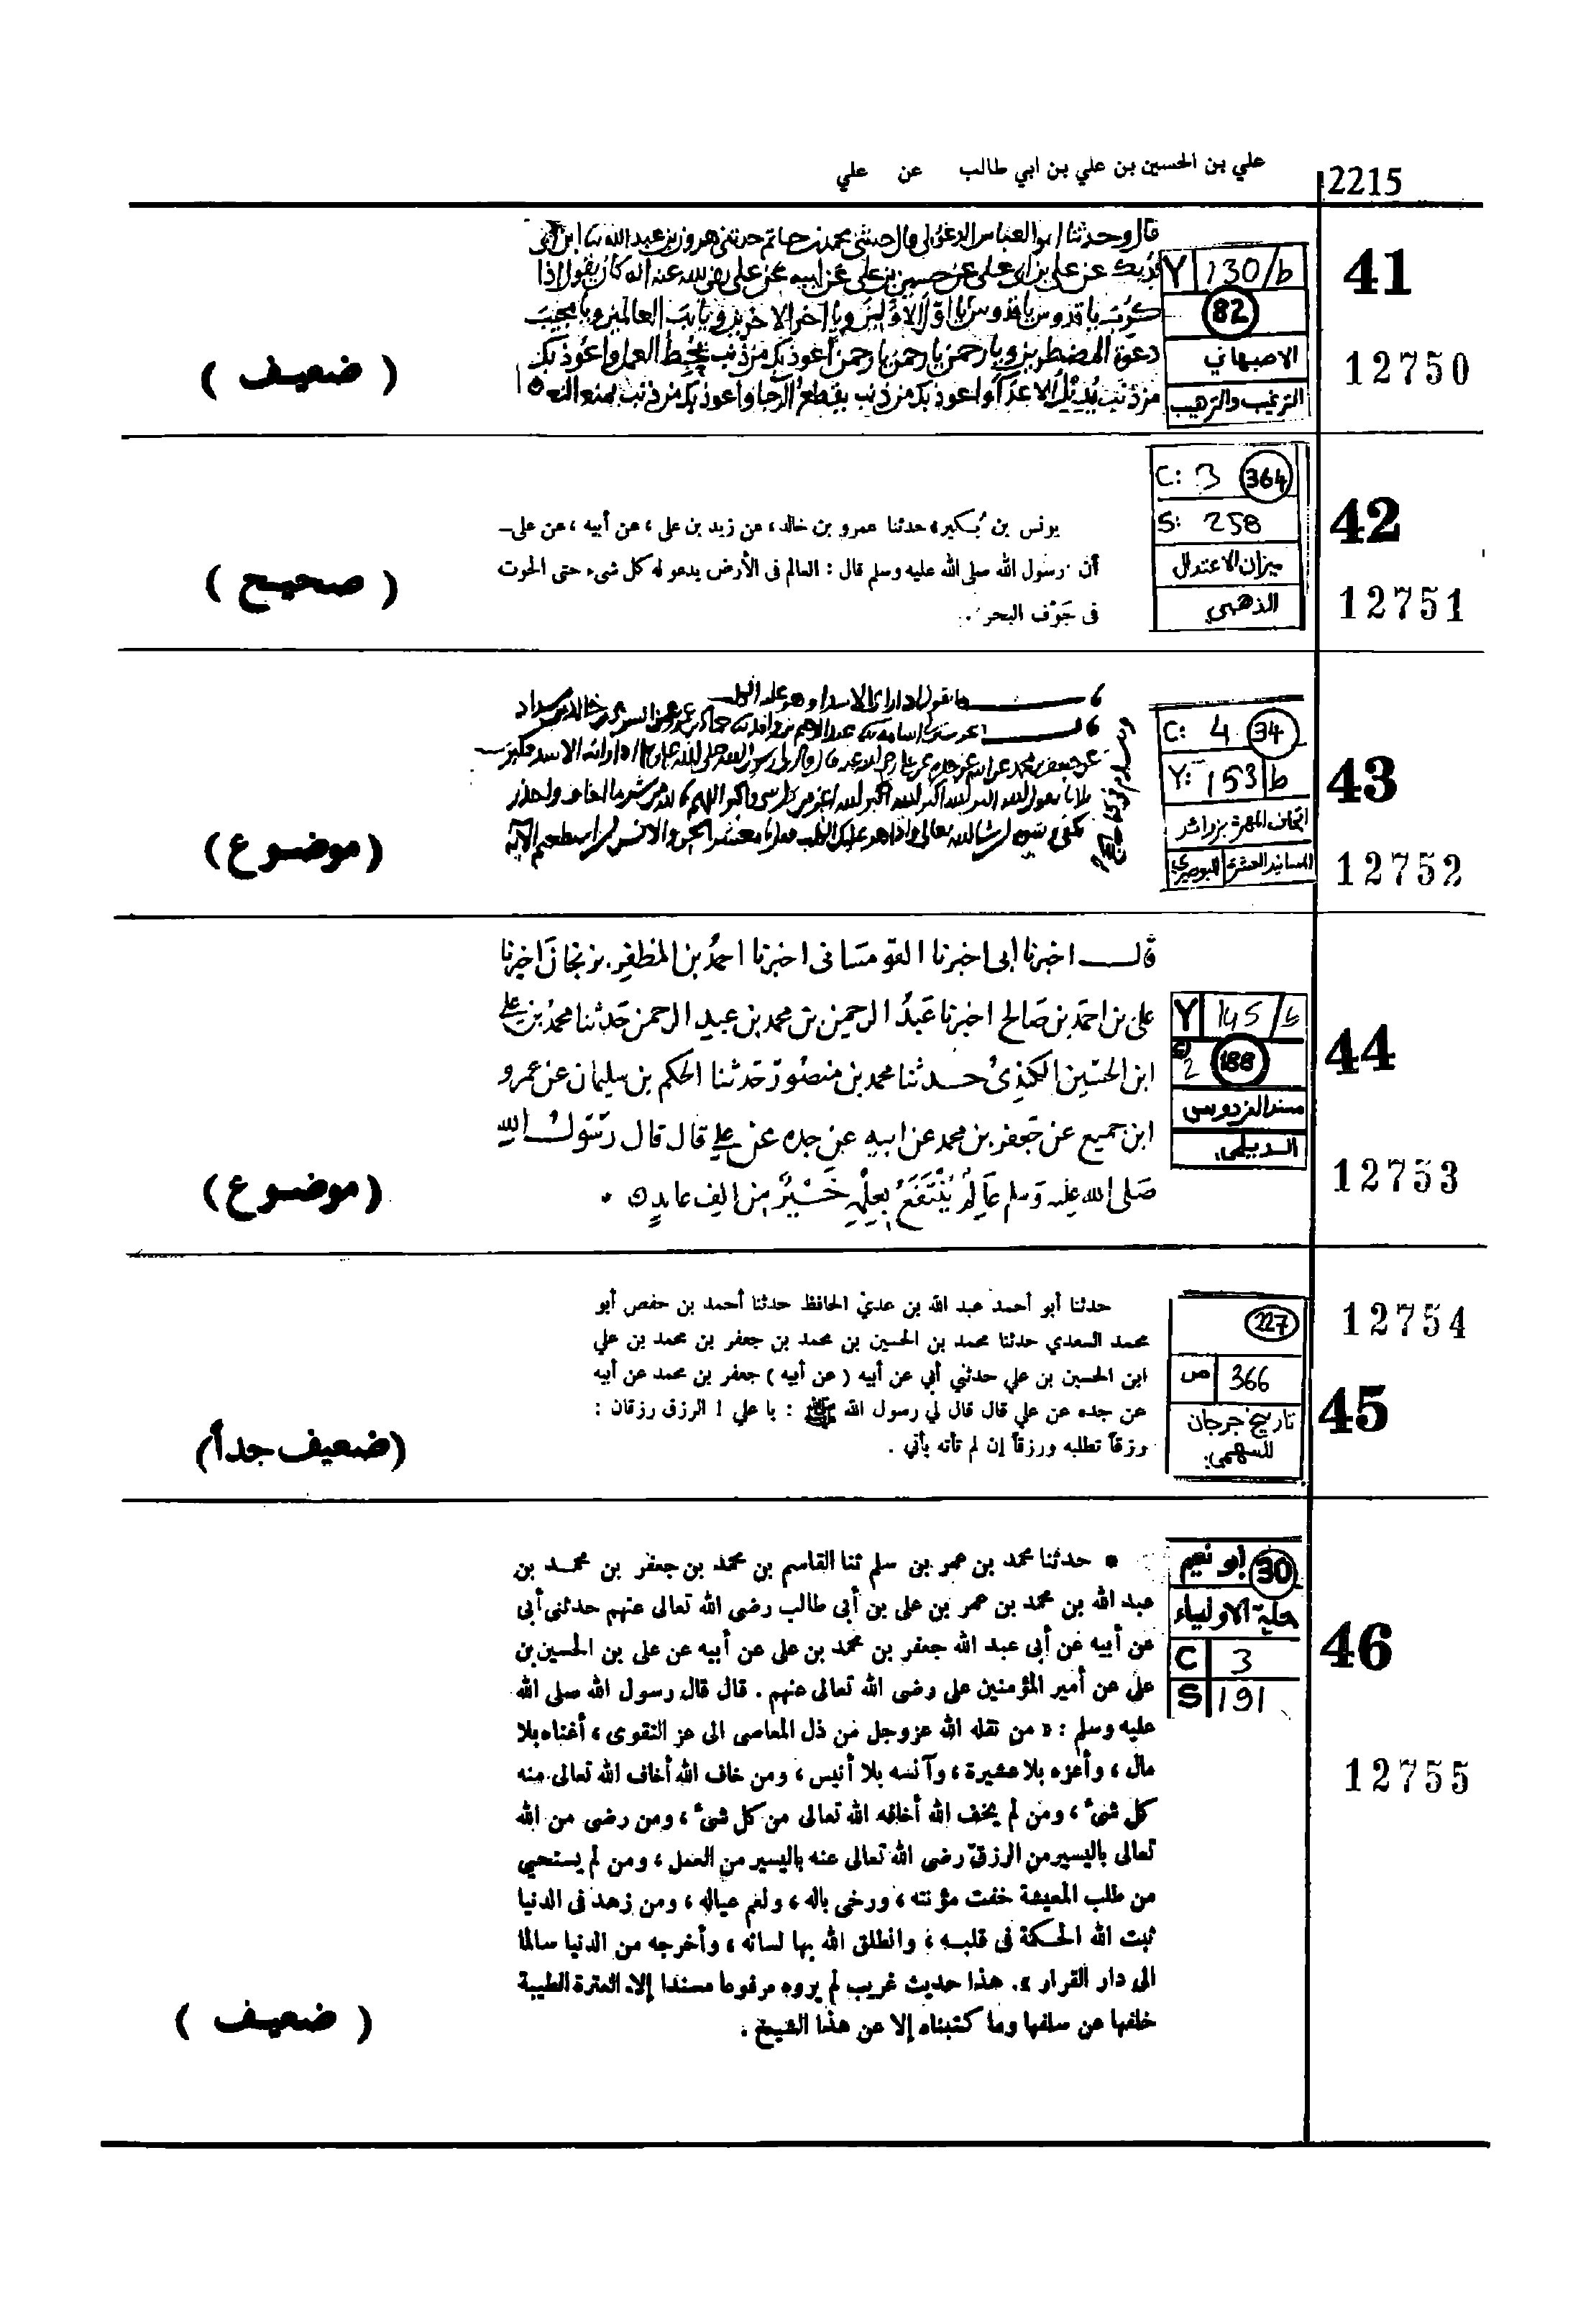 علي بن الحسين بن علي بن ابي طالب عن علي
2215
41
Y 130/b
82
الاصبهاني
الترغيب والترهيب
12750
قال وحدثنا ابو العباس الدغولي قال حدثني محمد بن حاتم حدثني هرون بن عبد الله ثنا ابن ابي
فديك عن علي بن ابي علي عن حسين بن علي عن ابيه عن علي رضي الله عنه انه كان يقول اذا
كربت يا قدوس يا قدوس يا اول الاولين ويا اخر الاخرين ويا رب العالمين ويا مجيب
دعوة المضطرين ويا رحمن يا رحمن يا رحمن اعوذ بك من ذنب يحبط العمل واعوذ بك
من ذنب يديل الاعدآ واعوذ بك من ذنب يقطع الرجا واعوذ بك من ذنب يمنع
( ضعيف )
42
C: 3 364
S: 258
ميزان الاعتدال
الذهبي
12751
يونس بن بُكير، حدثنا عمرو بن خالد، عن زيد بن على، عن أبيه، عن على –
أن رسول الله صلى الله عليه وسلم قال : العالم فى الأرض يدعو له كل شىء حتى الحوت
فى جَوْف البحر .
( صحيح )
43
C: 4 34
Y: 153 b
اتحاف المهرة بزوائد
المسانيد العشرة البوصيري
12752
ما يقول اذا راى الاسد او هر عليه الكلب
( موضوع )
44
Y 145/b
2 188
مسند الفردوس
الديلمي
12753
قال اخبرنا ابى اخبرنا القومسانى اخبرنا احمد بن المظفر بن اخبرنا
على بن احمد بن صالح اخبرنا عَبدُ الرحمن بن محمد بن عبد الرحمن حَدثنا محمد بن علي
ابن الحسَين الكندِىُ حدثنا محمد بن منصُور حَدثنا الحكم بن سليمان عن عمرو
ابن جميع عن جَعفر بن محمد عن ابيه عن جده عن علي قال قال رسَولُ الله
صَلى الله عليه وَسلم عَالِمٌ يُنْتَفَعُ بِعِلْمِهِ خَيْرٌ مِن الفِ عابِدٍ .
( موضوع )
12754
227
ص 366
تاريخ جرجان
للسهمي
45
حدثنا أبو أحمد عبد الله بن عدي الحافظ حدثنا أحمد بن حفص أبو
محمد السعدي حدثنا محمد بن الحسين بن محمد بن جعفر بن محمد بن علي
ابن الحسين بن علي حدثني أبي عن أبيه ( عن أبيه ) جعفر بن محمد عن أبيه
عن جده عن علي قال قال لي رسول الله ﷺ : يا علي ! الرزق رزقان :
رزقاً تطلبه ورزقاً إن لم تأته يأتي .
(ضعيف جداً)
30 أبو نعيم
حلية الاولياء
C 3
S 191
46
12755
• حدثنا محمد بن عمر بن سلم ثنا القاسم بن محمد بن جعفر بن محمد بن
عبد الله بن محمد بن عمر بن على بن أبى طالب رضى الله تعالى عنهم حدثنى أبى
عن أبيه عن أبى عبد الله جعفر بن محمد بن على عن أبيه عن على بن الحسين بن
على عن أمير المؤمنين على رضى الله تعالى عنهم . قال قال رسول الله صلى الله
عليه وسلم : « من نقله الله عز وجل من ذل المعاصى الى عز التقوى ، أغناه بلا
مال ، وأعزه بلا عشيرة ، وآنسه بلا أنيس ، ومن خاف الله أخاف الله تعالى منه
كل شئ ، ومن لم يخف الله أخافه الله تعالى من كل شئ ، ومن رضى من الله
تعالى باليسير من الرزق رضى الله تعالى عنه باليسير من العمل ، ومن لم يستحيى
من طلب المعيشة خفت مؤنته ، ورخى باله ، ونعم عياله ، ومن زهد فى الدنيا
ثبت الله الحكمة فى قلبه ، وانطلق الله بها لسانه ، وأخرجه من الدنيا سالما
الى دار القرار ». هذا حديث غريب لم يروه مرفوعا مسندا إلا العترة الطيبة
خلفها عن سلفها وما كتبناه إلا عن هذا الشيخ .
( ضعيف )